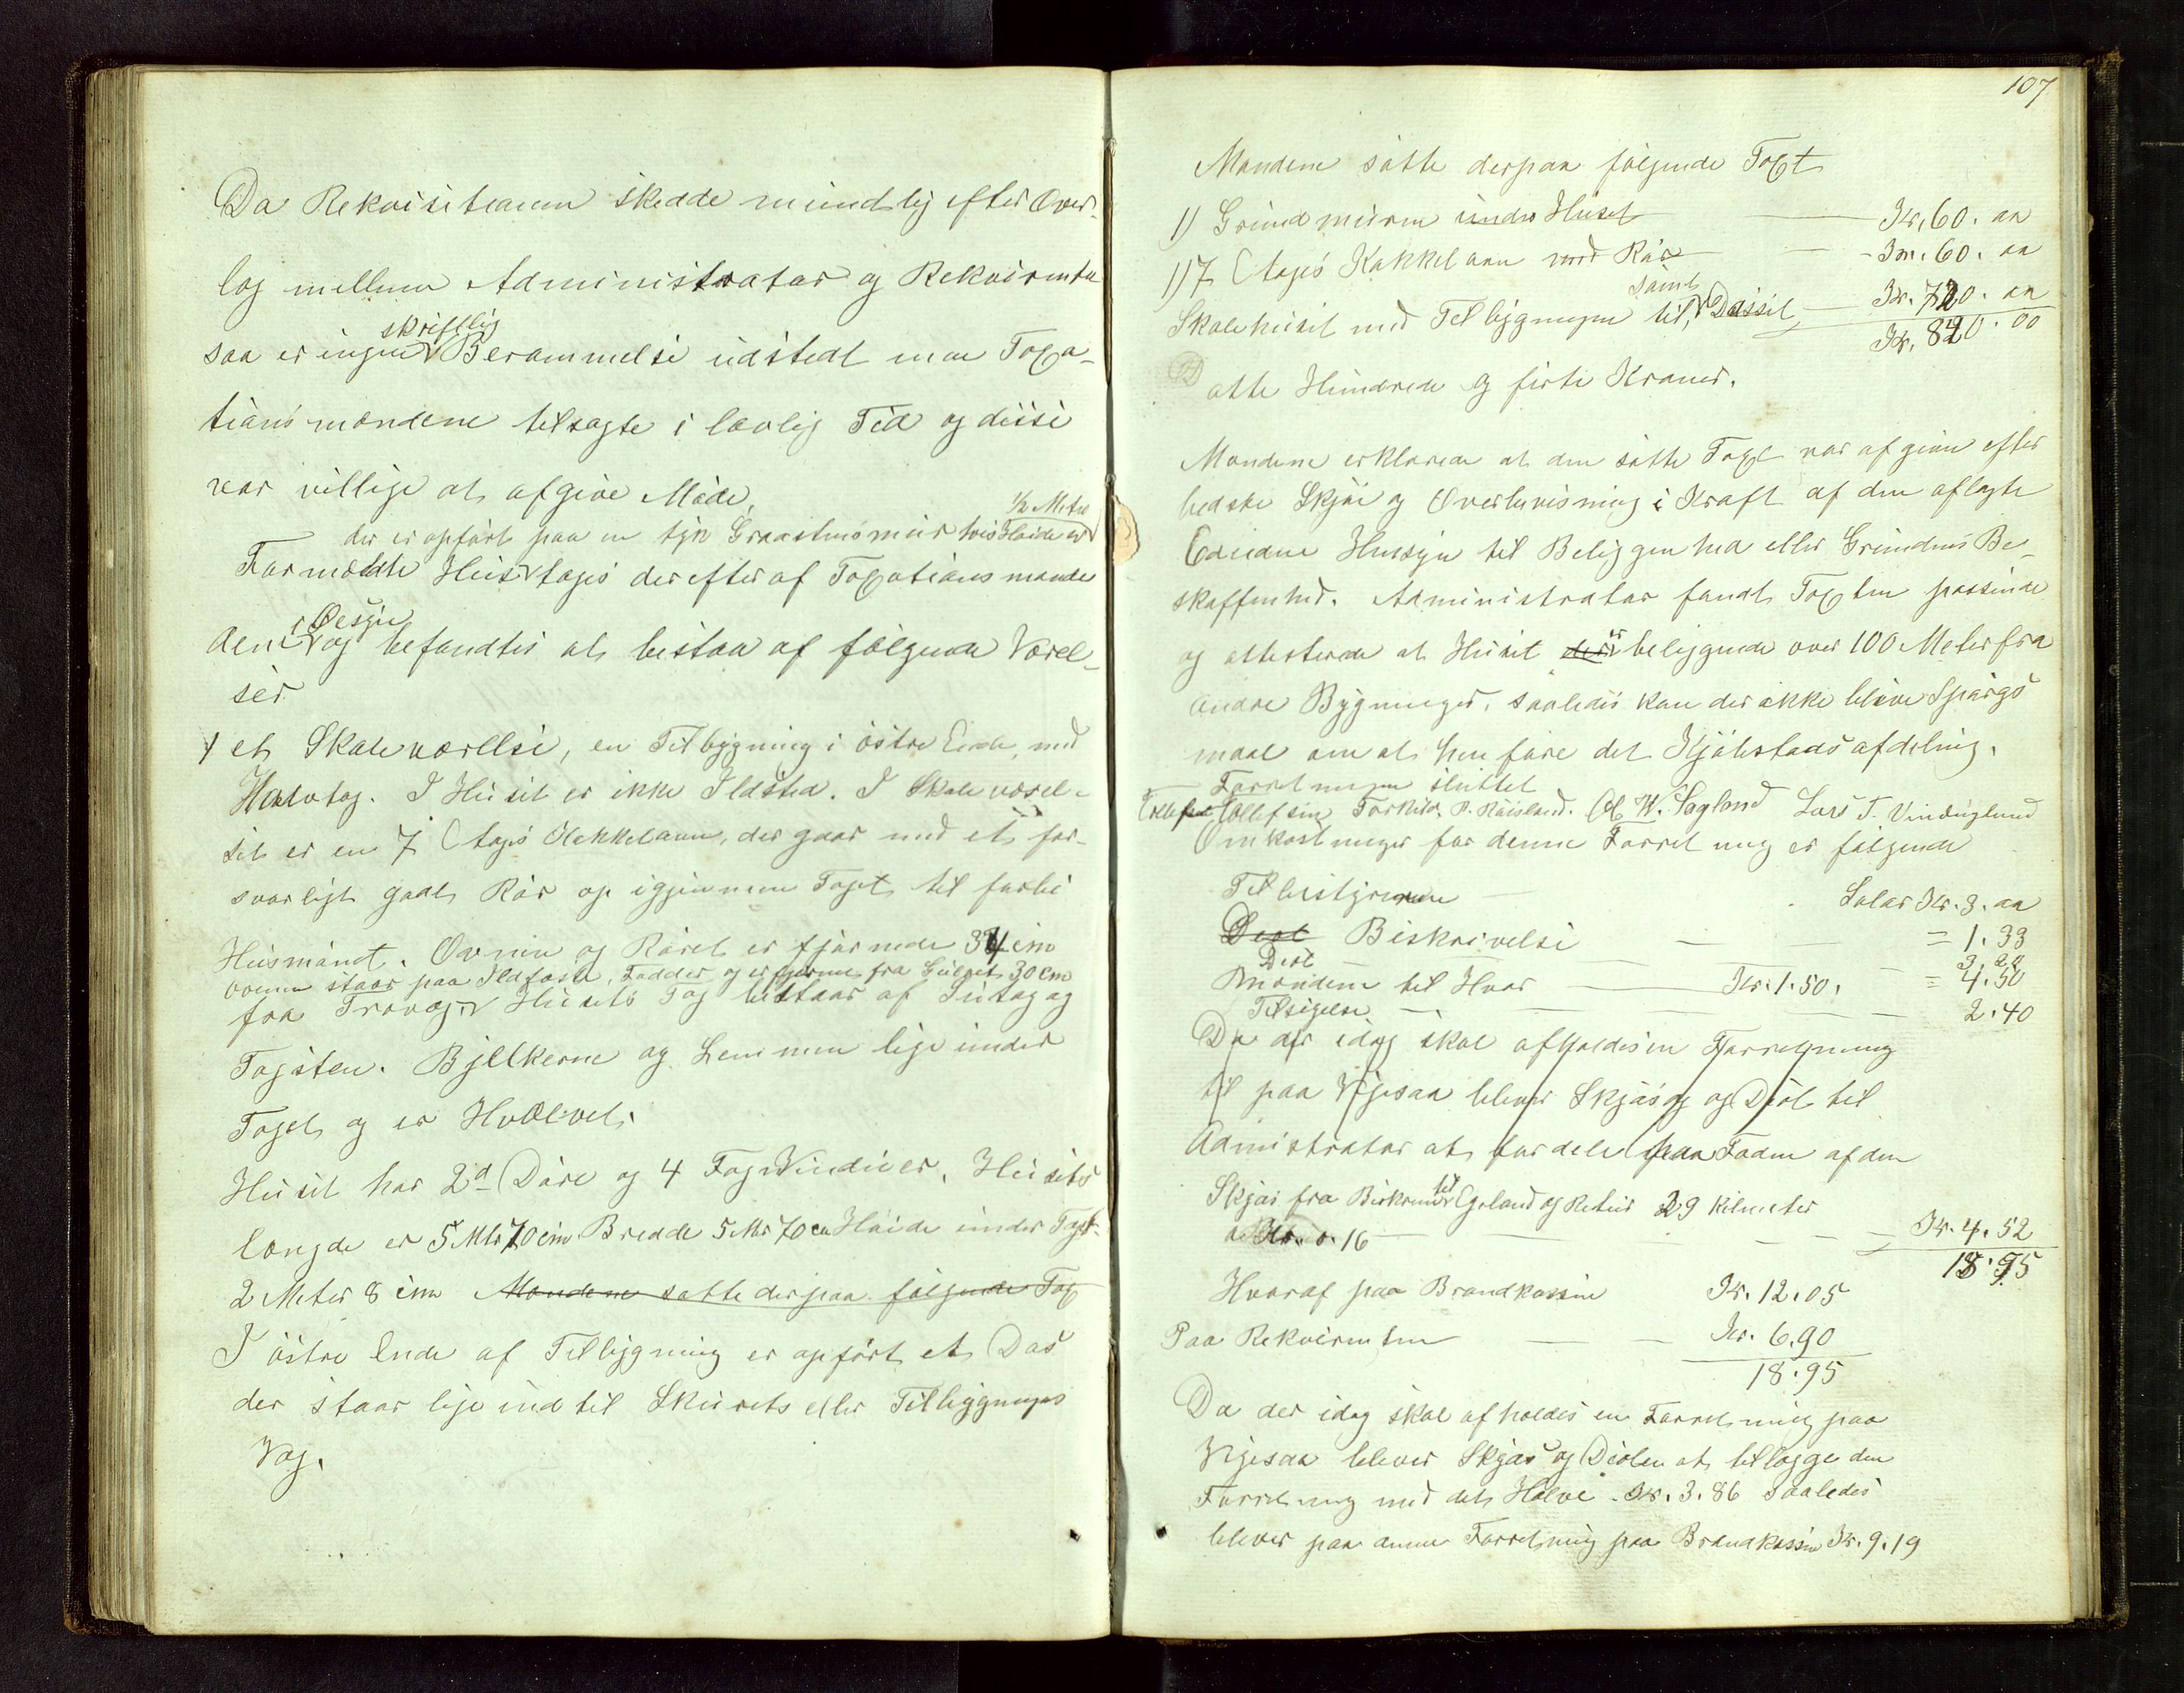 Da Rekvisitionen skedde mundtlig efter Over-
læg mellem Administrator og Rekvirenten
skriftlig
saa er ingen Berammelse udstedt men Taxa-
tionsmændene tilsagte i lovlig Tid og disse
var villige at afgive Møde.
1/2 Meter
der er opført paa en tyk Graastensmur hvis Høide er
Formældte Hus toges derefter af Taxationsmænde
i Øiesyn
dene og befandtes at bestaa af følgende Værel-
ser
1 et Skoleværelse, en Tilbygning i østre Ende med
Halvtag. I Huset er ikke Ildsted. I Skoleværel-
set er en 7 Etages Kakkelovn, der gaar med et for-
svarligt godt Rør op igjennem Taget til forbi
Husmønet. Ovnen og Røret er fjernede 34 cm
ovnen staar paa Ildfaste Fødder og er fjernet fra Gulvet 30 cm
fra Træværk Husets Tag bestaar af Sutag og
Tagsten. Bjelkerne og Lemmen lige under
Taget og er Hvælvet.
Huset har 2d Døre og 4 Fag Vinduer. Husets
længde er 5 Mtr 70 cm Bredde 5 Mtr 70 cm Høide under Taget
2 Meter 8 cm Mændene satte derpaa følgende Tax
I østre Ende af Tilbygning er opført et Das
der staar lige ind til Skurets eller Tilbygnings
Væg.
107
Mændene satte derpaa følgende Taxt
1) Grundmuren under Huset Kr. 60. 00
1) 7 Etages Kakkelovn med Rør Kr. 60. 00
samt
Skolehuset med Tilbygningen til, Dasset Kr. 720. 00
Kr. 840. 00
otte Hundrede og firti Kroner.
Mændene erklærede at den satte Taxt var afgiven efter
bedste Skjøn og Overbevisning i Kraft af den aflagte
Ed uden Hensyn til Beliggenhed eller Grundens Be-
skaffenhed. Administrator fandt Taxten passende
og attesterede at Huset der er beliggende over 100 Meter fra
andre Bygninger, saaledes kan der ikke blive Spørgs
maal om at henføre det Kjøbstadsafdeling.
Forretningen sluttet
Tollef Tollefsen Torkild P. Røisland. Ol W. Sagland Lars T. Vindinglund
Omkostninger for denne Forretning er følgende
Til bestyreren Salær Kr. 3. 00
Diæt Beskrivelse = 1. 33
Diæt 3,20
Mændene til Hver Kr. 1. 50. = 4. 50
Tilsigelse 2. 40
Da der idag skal afholdes en Forretning
til paa Vigesaa bliver Skjøs og Diæt til
Administrator at fordele paa Foden af den
Skjøs fra Birkrem til Egeland og Retur 29 Kilometer
a Kr. 0. 16 Kr. 4. 52
18. 95
Hvoraf paa Brandkassen Kr. 12. 05
Paa Rekvirenten Kr. 6. 90
18. 95
Da der idag skal afholdes en Forretning paa
Vigesaa bliver Skjøs og Diæten at tillægge den
Forretning med det Halve Kr. 3. 86 Saaledes
bliver paa denne Forretning paa Brandkassen Kr. 9. 19